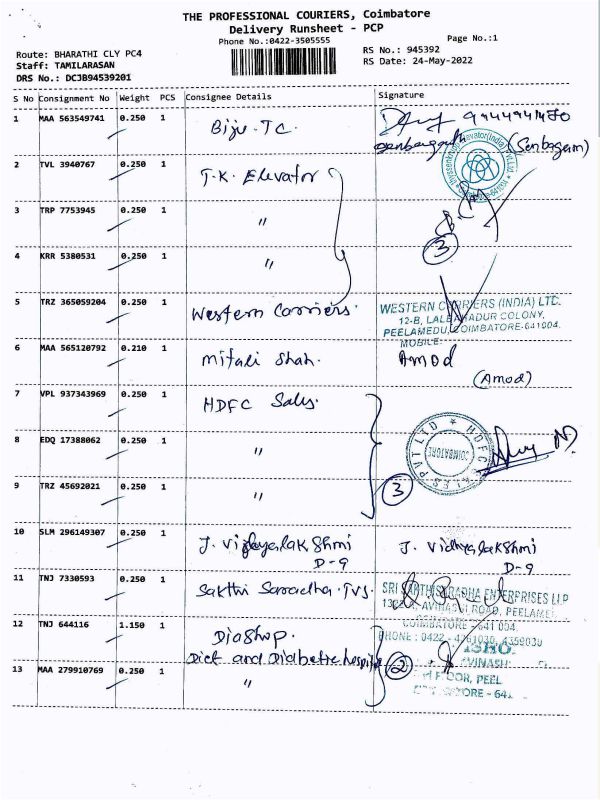 THE PROFESSIONAL COURIERS, Coimbatore
Delivery Runsheet - PCP
Phone No.:0422-3505555
Page No.:1
Route: BHARATHI CLY PC4
Staff: TAMILARASAN
DRS No.: DCJB94539201
RS No.: 945392
RS Date: 24-May-2022
S No Consignment No Weight PCS Consignee Details Signature
1 MAA 563549741 0.250 1 Biju. TC.
(Senbagam)
2 TVL 3940767 0.250 1 T.K. Elevator
3 TRP 7753945 0.250 1 "
(3)
4 KRR 5380531 0.250 1 "
5 TRZ 365059204 0.250 1 Western Carriers.
WESTERN CARRIERS (INDIA) LTD.
12-B, LALBAHADUR COLONY,
PEELAMEDU, COIMBATORE-641004.
MOBILE:
6 MAA 565120792 0.210 1 Mitali Shah. Amod
(Amod)
7 VPL 937343969 0.250 1 HDFC Sales.
HDFC SALES PVT LTD
COIMBATORE
8 EDQ 17388062 0.250 1 "
9 TRZ 45692021 0.250 1 "
(3)
10 SLM 296149307 0.250 1 J. Vidyalakshmi J. Vidhyalakshmi
D-9 D-9
11 TNJ 7330593 0.250 1 Sakthi Saradha. TVS.
ENTERPRISES LLP
AVINASHI ROAD, PEELAME
COIMBATORE - 641 004.
PHONE : 0422 -
12 TNJ 644116 1.150 1 Diashop.
Diet and Diabetic hospital
(2)
13 MAA 279910769 0.250 1 "
FLOOR, PEEL